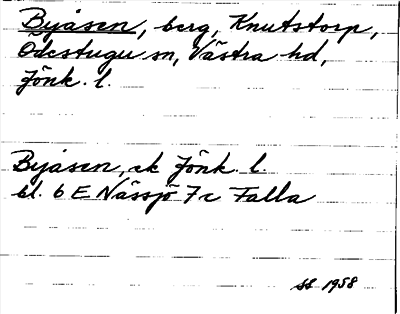 Byåsen, berg, Knutstorp,
Ödestugu sn, Västra hd,
Jönk. l.
Byåsen, ek Jönk. l.
bl. 6 E Nässjö 7c Falla
SS 1958